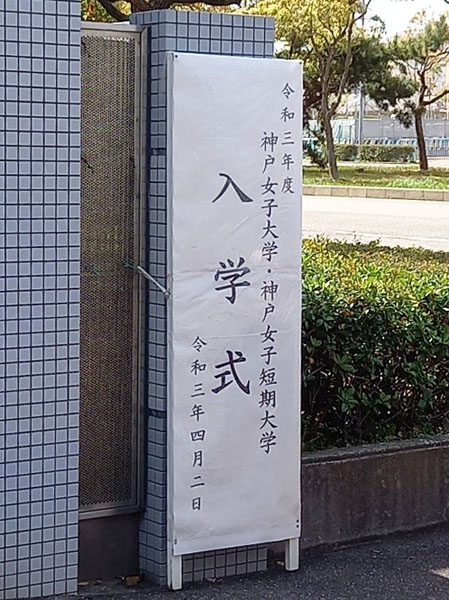 令和三年度
神戸女子大学・神戸女子短期大学
入学式
令和三年四月二日